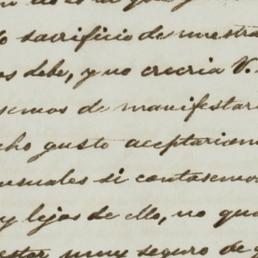 sacrificio de nuestra
os debe, y no creeria V.
semos de manifestar
cho gusto aceptariam
nsuales si contasemo
y lejos de ello, no qu
estar muy seguro de q